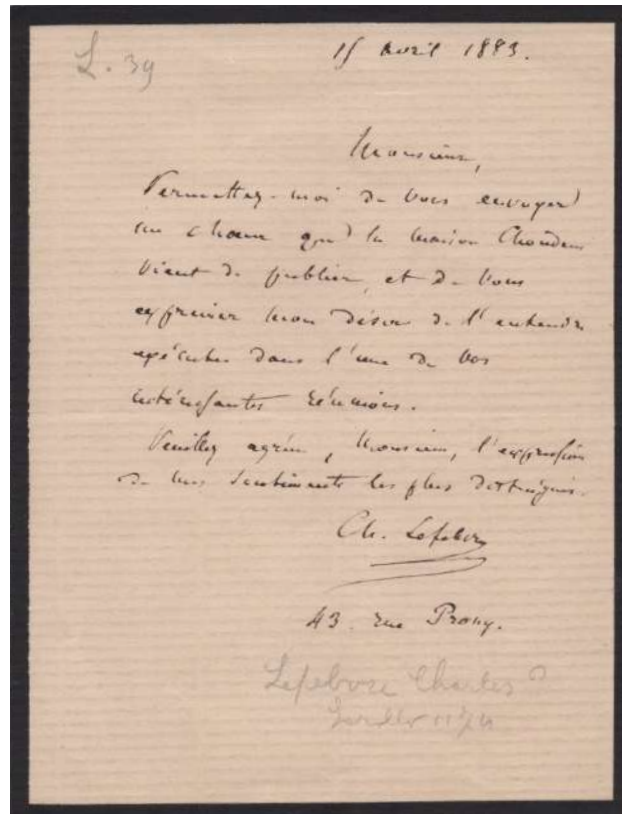 L. 39
15 avril 1883.
Monsieur,
Permettez-moi de vous envoyer
un chœur que la maison Choudens
vient de publier, et de vous
exprimer mon désir de l'entendre
exécuter dans l'une de vos
intéressantes réunions.
Veuillez agréer, Monsieur, l'expression
de mes sentiments les plus distingués.
Ch. Lefebvre
43. rue Prony.
Lefebvre Charles ?